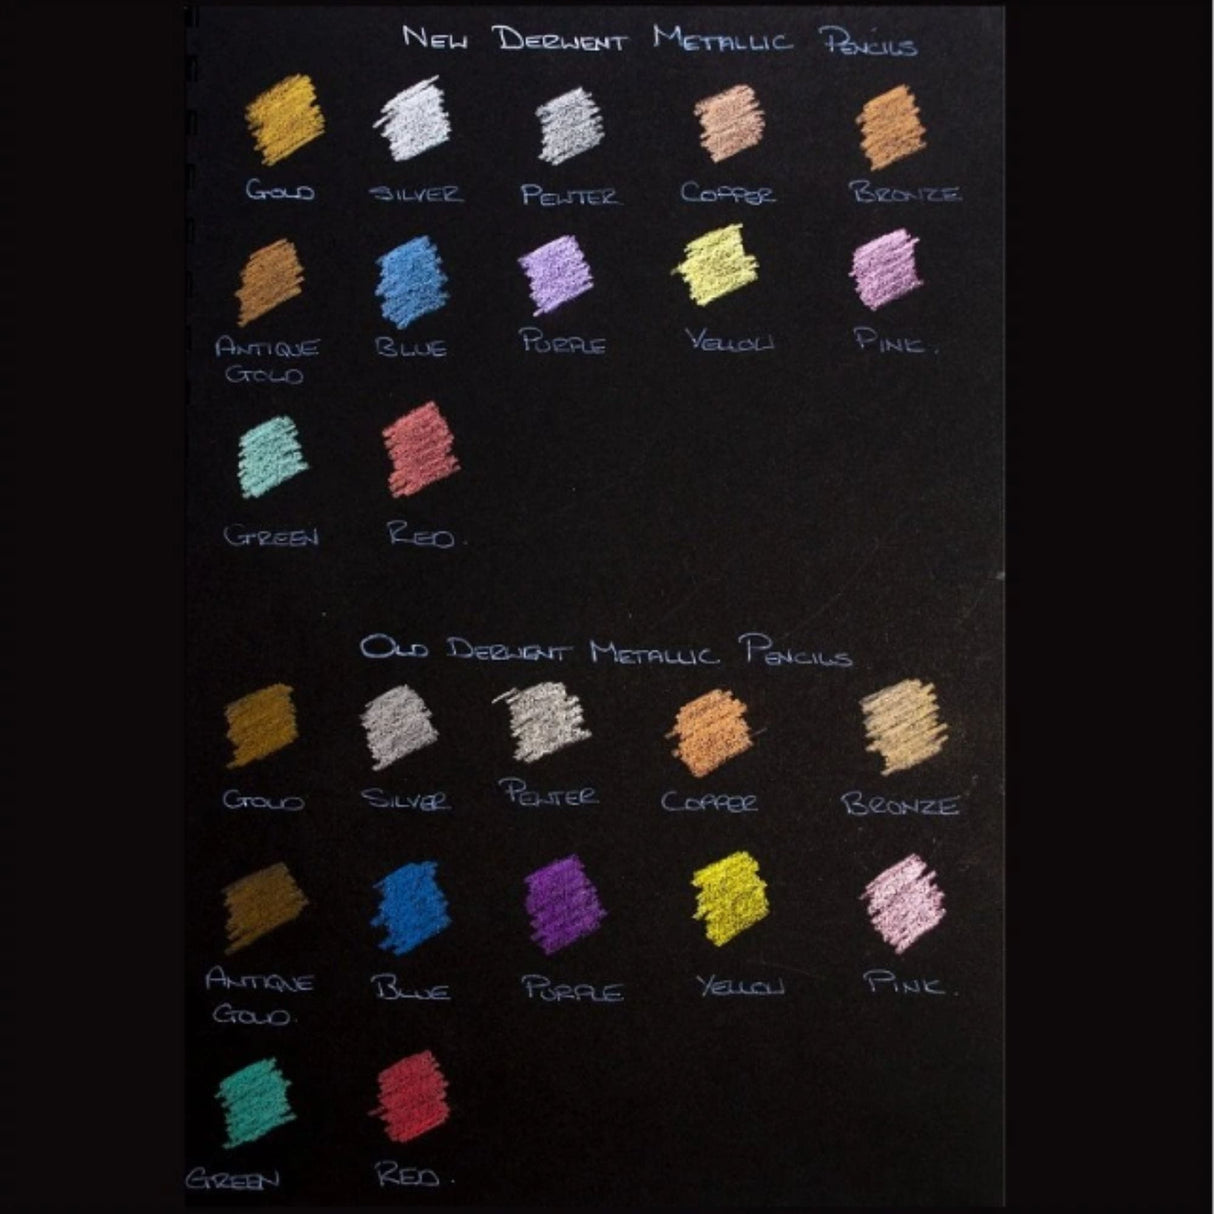 NEW DERWENT METALLIC PENCILS
GOLD SILVER PEWTER COPPER BRONZE
ANTIQUE GOLD BLUE PURPLE YELLOW PINK.
GREEN RED.
OLD DERWENT METALLIC PENCILS
GOLD SILVER PEWTER COPPER BRONZE
ANTIQUE GOLD. BLUE PURPLE YELLOW PINK.
GREEN RED.